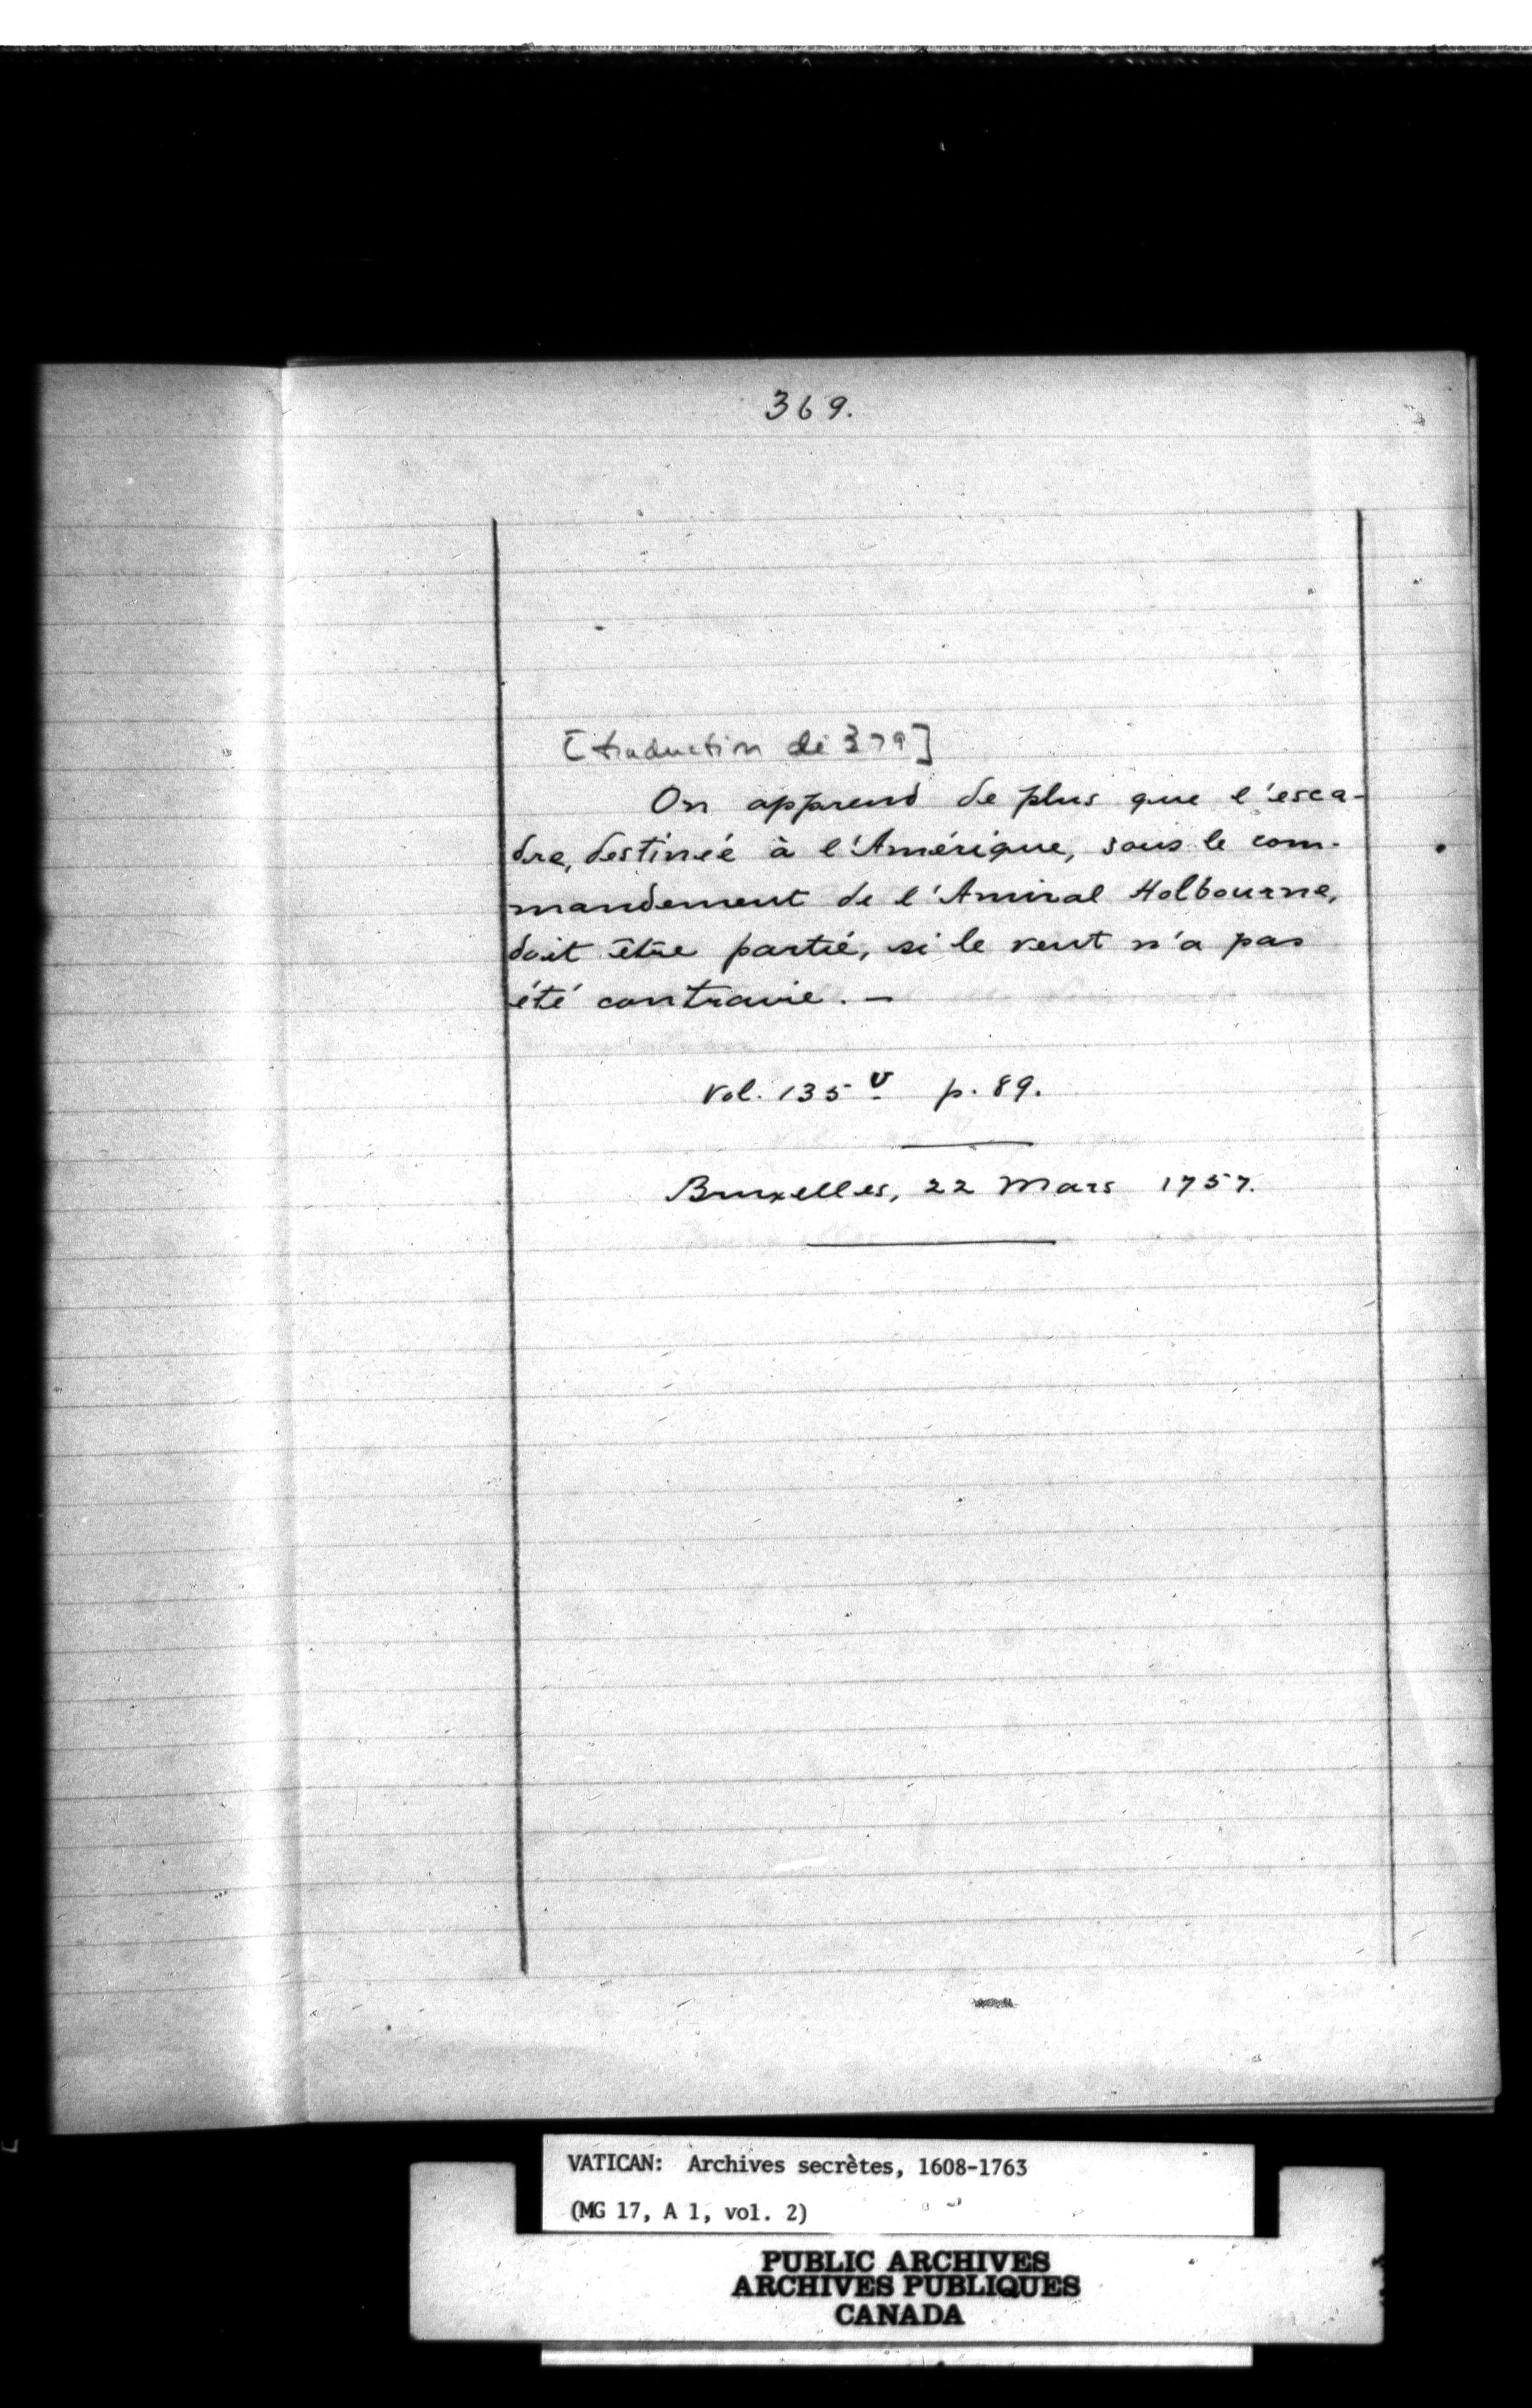 369.
[traduction de 379]
On apprend de plus que l'esca-
dre, destinée à l'Amérique, sous le com-
mandement de l'Amiral Holbourne,
doit être partie, si le vent n'a pas
été contraire. -
Vol. 135 v p. 89.
Bruxelles, 22 Mars 1757.
VATICAN: Archives secrètes, 1608-1763
(MG 17, A 1, vol. 2)
PUBLIC ARCHIVES
ARCHIVES PUBLIQUES
CANADA